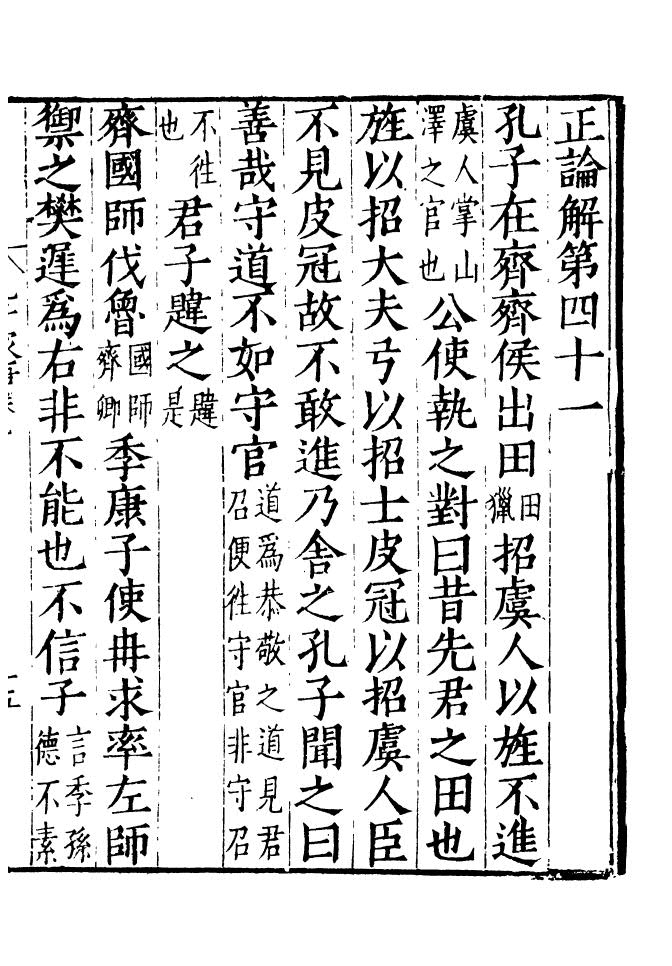 正論解第四十一
孔子在齊齊侯出田田獵招虞人以旌不進
虞人掌山澤之官也公使執之對曰昔先君之田也
旌以招大夫弓以招士皮冠以招虞人臣
不見皮冠故不敢進乃舍之孔子聞之曰
善哉守道不如守官道爲恭敬之道見君召便徃守官非守召
不徃也君子韙之韙是
齊國師伐魯國師齊卿季康子使冉求率左師
禦之樊遲爲右非不能也不信子言季孫德不素